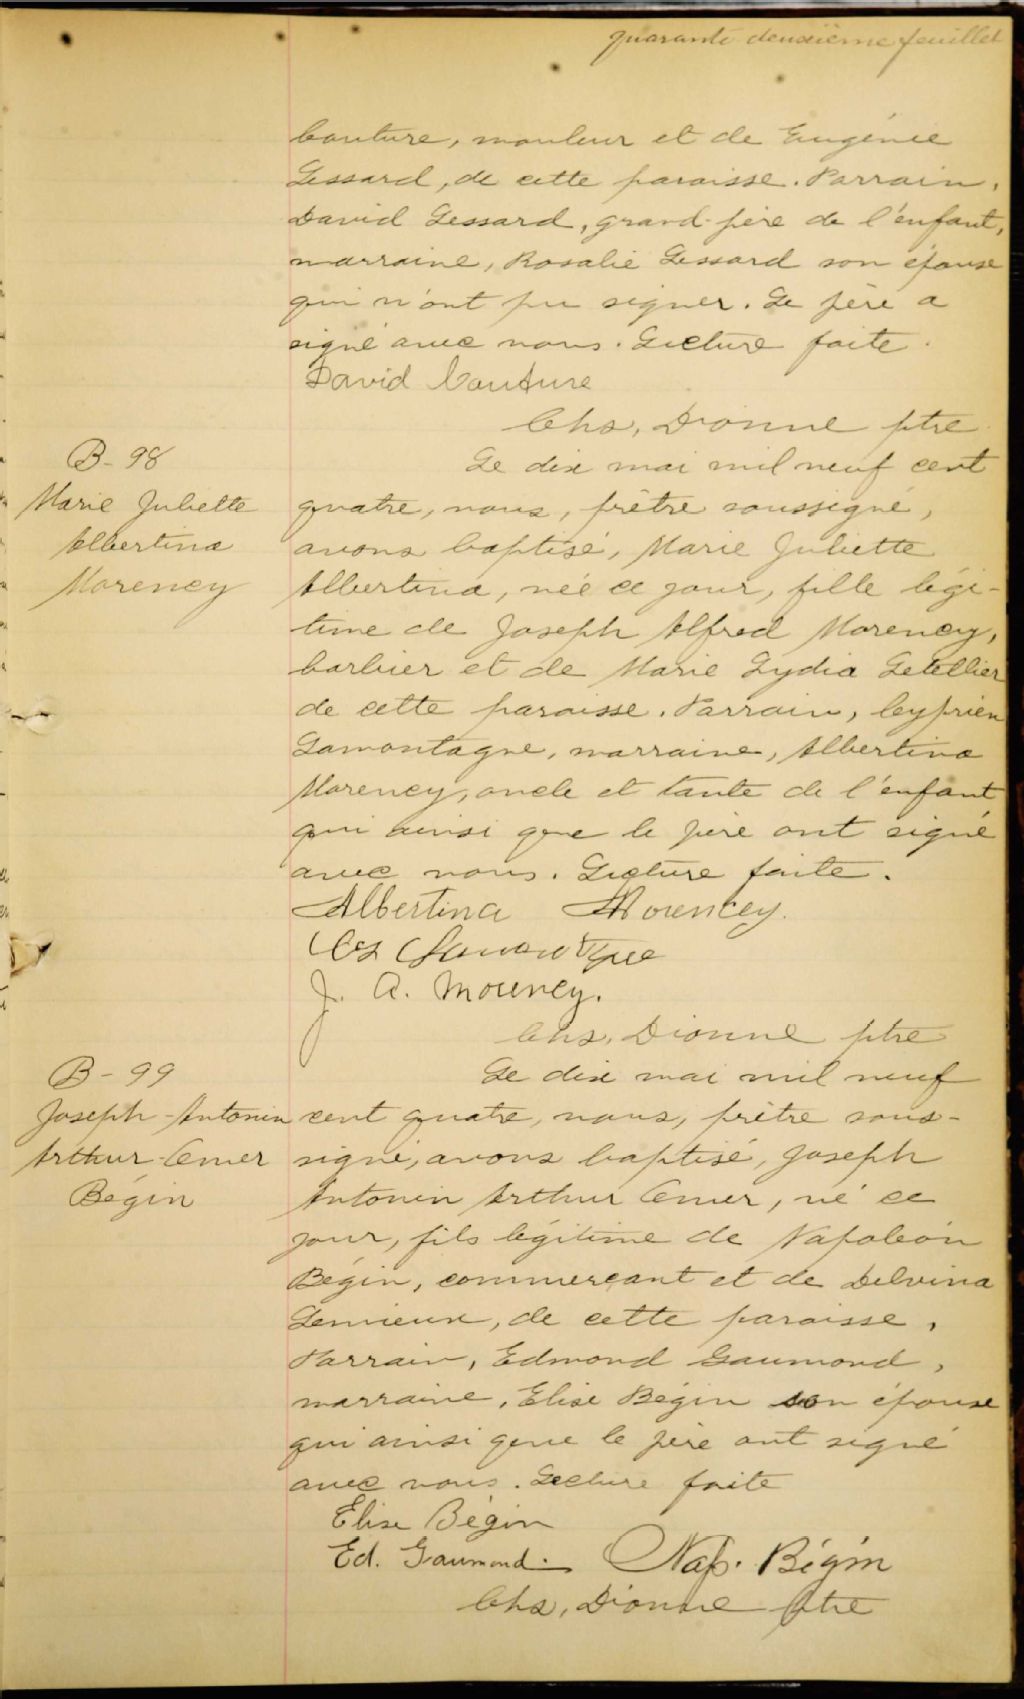 quarante deuxième feuillet
Couture, mouleur et de Eugénie
Lessard, de cette paroisse. Parrain,
David Lessard, grand-père de l'enfant,
marraine, Rosalie Lessard son épouse
qui n'ont pu signer. Le père a
signé avec nous. Lecture faite.
David Couture
Chs, Dionne ptre
B-98
Marie Juliette
Albertina
Morency
Le dix mai mil neuf cent
quatre, nous, prêtre soussigné,
avons baptisé, Marie Juliette
Albertina, née ce jour, fille légi-
time de Joseph Alfred Morency,
barbier et de Marie Lydia Letellier
de cette paroisse. Parrain, Cyprien
Lamontagne, marraine, Albertina
Morency, oncle et tante de l'enfant
qui ainsi que le père ont signé
avec nous. Lecture faite.
Albertina Morencey.
J. A. Morency.
Chs, Dionne ptre
B-99
Joseph-Antonin
Arthur-Omer
Bégin
Le dix mai mil neuf
cent quatre, nous, prêtre sous-
signé, avons baptisé, Joseph
Antonin Arthur Omer, né ce
jour, fils légitime de Napoléon
Bégin, commerçant et de Delvina
Lemieux, de cette paroisse,
Parrain, Edmond Gaumond,
marraine, Elise Bégin son épouse
qui ainsi que le père ont signé
avec nous. Lecture faite
Elise Bégin
Ed. Gaumond. Nap. Bégin
Chs, Dionne ptre